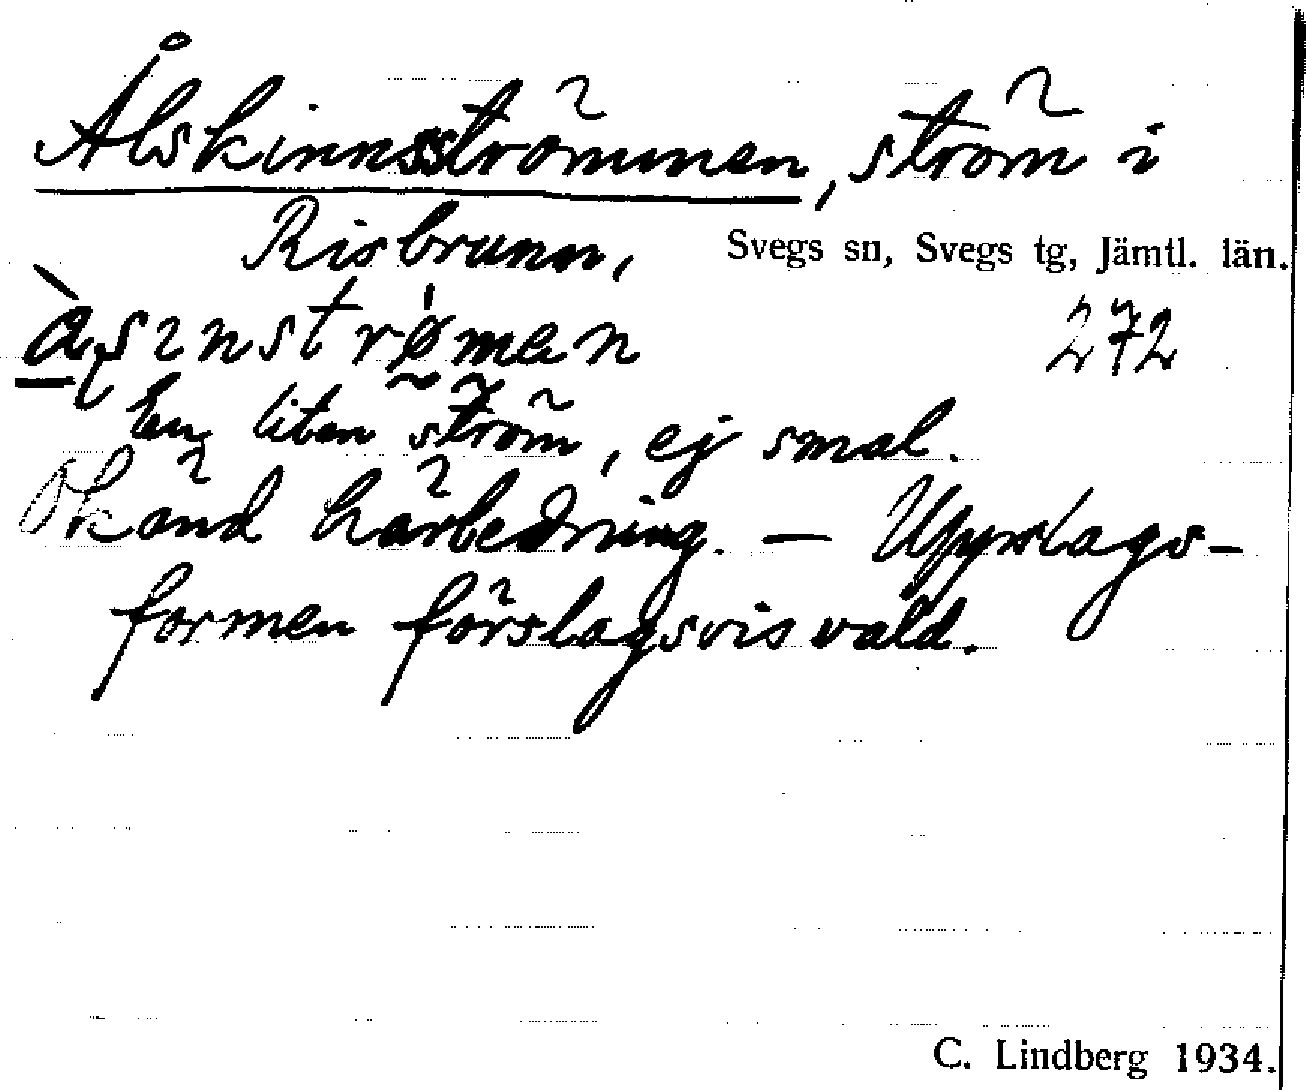 Ålskinnsströmmen, ström i
Risbrunn, Svegs sn, Svegs tg, Jämtl. län.
272
En liten ström, ej smal.
Okänd härledning. — Uppslags-
formen förslagsvis vald.
C. Lindberg 1934.